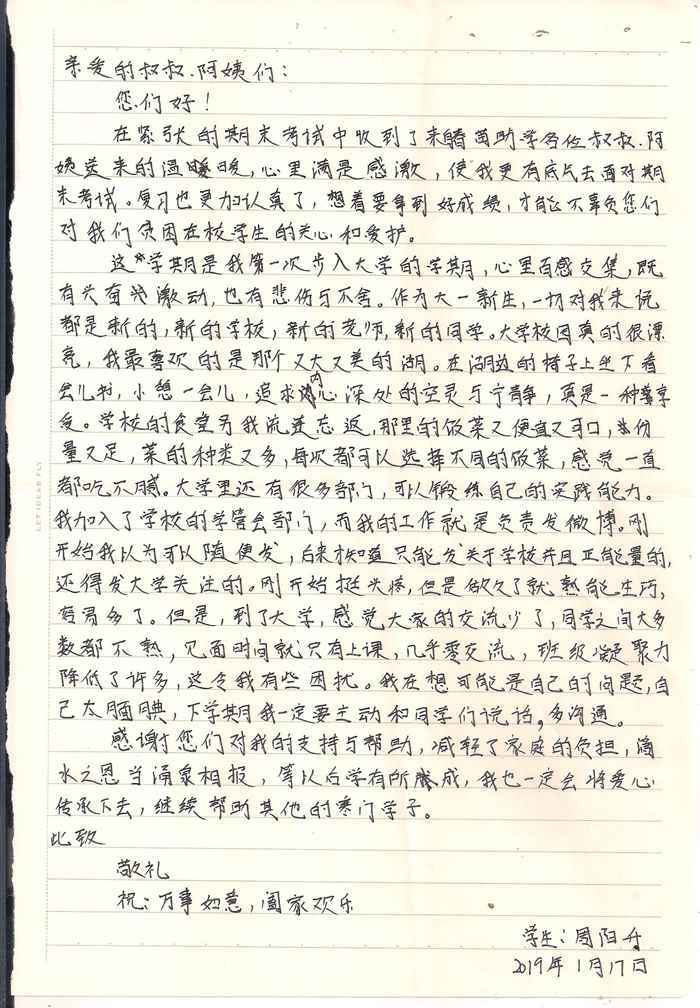 亲爱的叔叔、阿姨们：
您们好！
在紧张的期末考试中收到了来自苗助学各位叔叔、阿
姨送来的温暖，心里满是感激，使我更有底气去面对期
末考试。复习也更加认真了，想着要拿到好成绩，才能不辜负您们
对我们贫困在校学生的关心和爱护。
这学期是我第一次步入大学的学期，心里百感交集，既
有兴奋激动，也有悲伤与不舍。作为大一新生，一切对我来说
都是新的，新的学校，新的老师，新的同学。大学校园真的很漂
亮，我最喜欢的是那个又大又美的湖。在湖边的椅子上坐下看
会儿书，小憩一会儿，追求内心深处的空灵与宁静，真是一种享
受。学校的食堂另我流连忘返，那里的饭菜又便宜又可口，当份
量又足，菜的种类又多，每次都可以选择不同的饭菜，感觉一直
都吃不腻。大学里还有很多部门，可以锻练自己的实践能力。
我加入了学校的学管会部门，而我的工作就是负责发微博。刚
开始我以为可以随便发，后来才知道只能发关于学校并且正能量的，
还得发大学关注的。刚开始挺头疼，但是做久了就熟能生巧，
容易多了。但是，到了大学，感觉大家的交流少了，同学之间大多
数都不熟，见面时间就只有上课，几乎零交流，班级凝聚力
降低了许多，这令我有些困扰。我在想可能是自己的问题，自
己太腼腆，下学期我一定要主动和同学们说话，多沟通。
感谢您们对我的支持与帮助，减轻了家庭的负担，滴
水之恩当涌泉相报，等以后学有所成，我也一定会将爱心
传承下去，继续帮助其他的寒门学子。
此致
敬礼
祝：万事如意，阖家欢乐
学生：周阳丹
2019年1月17日
LET IDEAS FLY